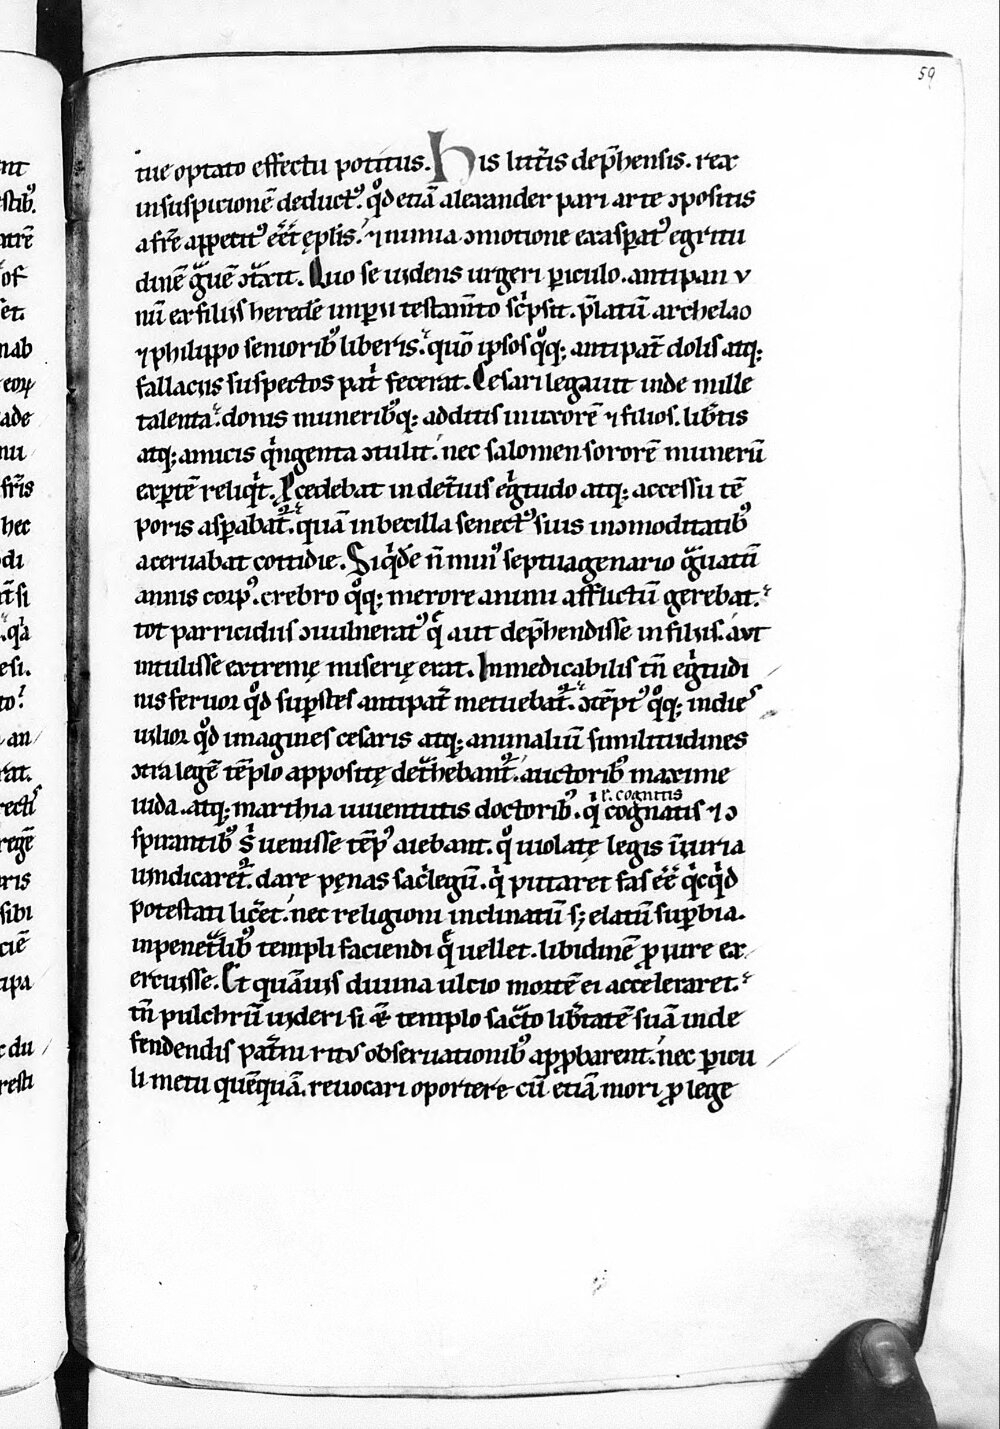 59
tue optato effectu potitus. His litt̃is dep̃hensis. rex
in suspicionẽ deductꝰ. qͦd etiã alexander pari arte ɔpositis
a fr̃e appetitꝰ eẽt ęp̃lis. ⁊ nimia ɔmotione exaspatꝰ egritu
dinẽ g̃uẽ ɔt̃axit. Quo se uidens urgeri ꝑiculo. antipan v
nũ ex filiis heredẽ impii testam̃to sc̃psit. p̃latũ archelao
⁊ philippo senioribꝰ liberis. quõ ipsos qͦq; antipat̃ dolis atq;
fallaciis suspectos pat̃ fecerat. Cesari legauit inde mille
talenta. donis muneribꝰq; additis in uxorẽ ⁊ filios. lib̃tis
atq; amicis qͥngenta ɔtulit. nec salomen sororẽ munerũ
exꝑtẽ reliqͥt. Pcedebat in det̃ius eg̃tudo atq; accessu tẽ
poris asꝑabat᷑. quã inbecilla senectꝰ suis inɔmoditatibꝰ
aceruabat cottidie. Siqͥdẽ ñ minꝰ septuagenario g̃uatũ
annis corpꝰ. crebro qͦq; merore animi afflictũ gerebat.
tot parricidiis ɔuulneratꝰ qͤ aut dep̃hendisse in filiis. aut
intulisse extremę miserię erat. Inmedicabilis tñ eg̃tudi
nis feruor qͦd suꝑstes antipat̃ metuebat᷑. ɔtẽptꝰ qͦq; indies
uilior qͦd imagines cesaris atq; animaliũ similitudines
ɔtra legẽ tẽplo appositę det̃hebant᷑. auctoribꝰ maxime
iuda. atq; marthia iuuentutis doctoribꝰ. qͥ cognatis ⁊ ɔ
l. cognitis
spirantibꝰ s̃ uenisse tẽpꝰ aiebant. qͦ uiolatę legis iniuria
uindicaret᷑. dare pęnas sac̃legũ. qͥ putaret fas eẽ qͥcqͥd
potestati lic̃et. nec religioni inclinatũ s; elatũ suꝑbia.
inpenet̃libꝰ templi faciendi qͤ uellet. libidinẽ ꝓ iure ex
ercuisse. Et quãuis diuina ulcio mortẽ ei acceleraret.
tñ pulchrũ uideri si ẽ templo sac̃to lib̃tatẽ suã in de
fendendis pat̃ni ritus obseruationibꝰ apꝓbarent. nec ꝑicu
li metu quẽquã. reuocari oportere cũ etiã mori ꝓ lege